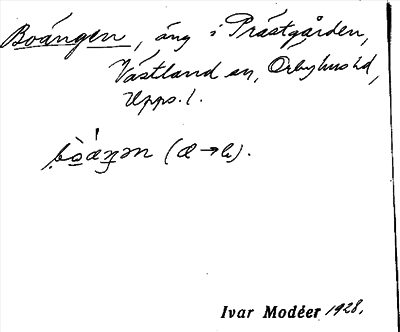 Boängen, äng i Prästgården,
Västland sn, Örbyhus hd,
Upps. l.
bòäŋən (æ→
Ivar Modéer 1928.